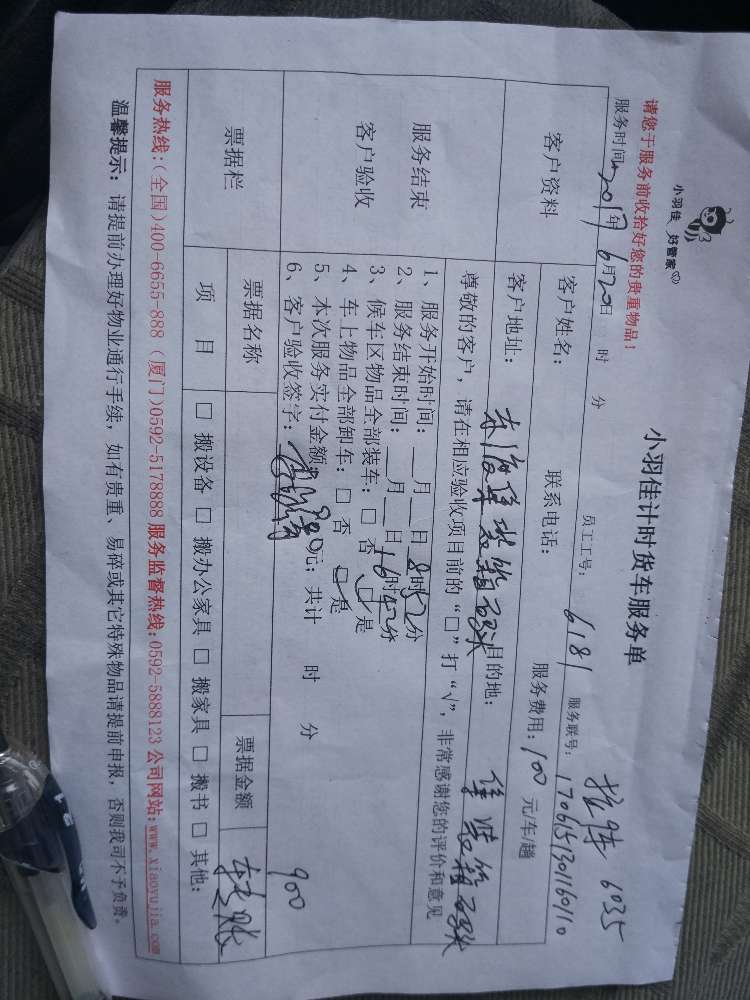 小羽佳 好管家
小羽佳计时货车服务单
请您于服务前收拾好您的贵重物品！
6035
服务时间 2017年 6月20日 时 分 员工工号: 6181 服务联号: 1706151301160110
客户资料
客户姓名: 联系电话: 服务费用: 100 元/车/趟
客户地址: 集装箱码头 目的地: 集装箱码头
服务结束
客户验收
尊敬的客户，请在相应验收项目前的“□”打“√”，非常感谢您的评价和意见
1、服务开始时间: 月 日 8时52分
2、服务结束时间: 月 日 16时42分
3、候车区物品全部装车: □ 否 □ 是
4、车上物品全部卸车: □ 否 □ 是
5、本次服务实付金额: 元; 共计 时 分
900
6、客户验收签字:
票据栏
票据名称 票据金额 转账
项 目 □ 搬设备 □ 搬办公家具 □ 搬家具 □ 搬书 □ 其他:
服务热线:(全国)400-6655-888 (厦门)0592-5178888 服务监督热线:0592-5888123 公司网站:www.xiaoyujia.com
温馨提示: 请提前办理好物业通行手续，如有贵重、易碎或其它特殊物品请提前申报，否则我司不予负责。